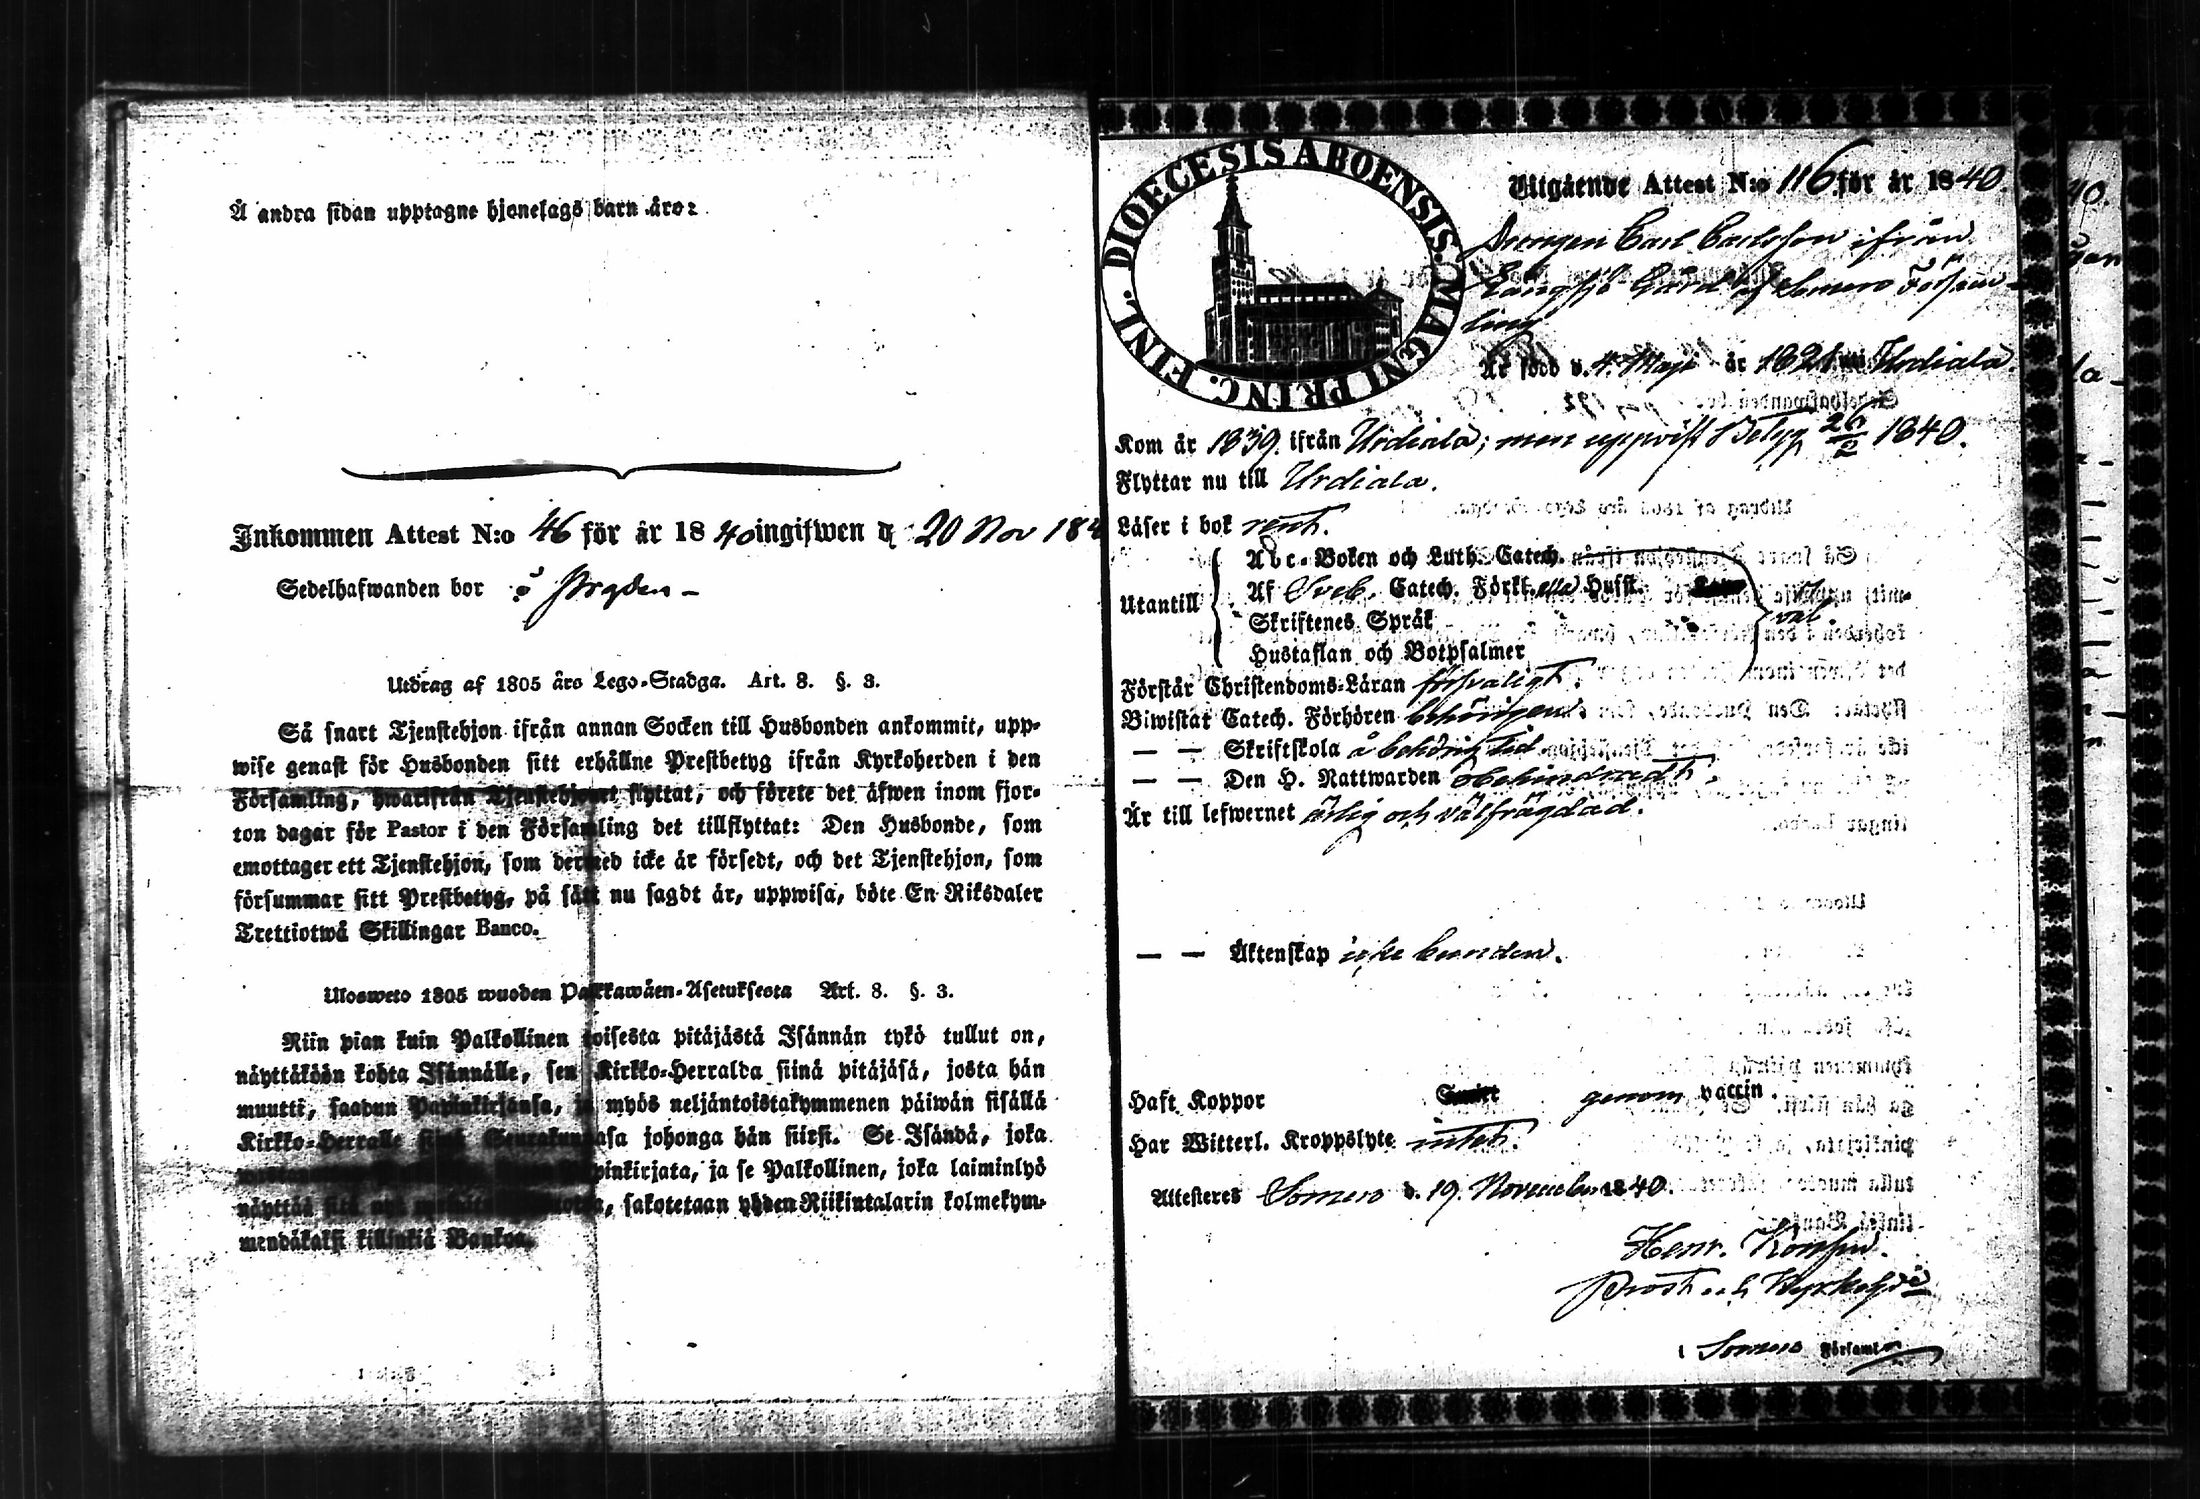 Å andra sidan upptagne hjonelags barn äro:
Inkommen Attest N:o 46 för år 1840 ingifwen d. 20 Nov 184
Sedelhafwanden bor å
Utdrag af 1805 års Lego-Stadga. Art. 8. §. 3.
Så snart Tjenstehjon ifrån annan Socken till Husbonden ankommit, upp-
wise genast för Husbonden sitt erhållne Prestbetyg ifrån Kyrkoherden i den
Församling, hwarifrån Tjenstehjonet flyttat, och förete det äfwen inom fjor-
ton dagar för Pastor i den Församling det tillflyttat: Den Husbonde, som
emottager ett Tjenstehjon, som dermed icke är försedt, och det Tjenstehjon, som
försummar sitt Prestbetyg, på sätt nu sagdt är, uppwisa, böte En Riksdaler
Trettiotwå Skillingar Banco.
Ulosweto 1805 wuoden Palkkawäen-Asetuksesta Art. 8. §. 3.
Niin pian kuin Palkollinen toisesta pitäjästä Isännän tykö tullut on,
näyttäköön kohta Isännälle, sen Kirkko-Herralda siinä pitäjäsä, josta hän
muutti, saadun Papinkirjansa, ja myös neljäntoistakymmenen päiwän sisällä
Kirkko-Herralle siinä Seurakunnasa johonga hän siirsi. Se Isändä, joka
pinkirjata, ja se Palkollinen, joka laiminlyö
näyttää sitä nyt, sakotetaan yhden Riikintalarin kolmekym-
mendäkaksi killinkiä Bankoa.
DIOECESIS ABOENSIS. MAGNI PRINC. FINL.
Utgående Attest N:o 116 för år 1840.
Drengen Carl Carlsson ifrån
Långsjö Gård af Somero Försam-
ling
Är född d. 4. Maji år 1821 i Urdiala.
Kom år 1839. ifrån Urdiala; men uppvist Betyg 26/2 1840.
Flyttar nu till Urdiala.
Läser i bok rent.
Utantill
Abc-Boken och Luth. Catech.
Af Sveb. Catech. Förkl. eller Husst.
Skriftenes Språk
Hustaflan och Botpsalmer
väl.
Förstår Christendoms-Läran försvarligt.
Biwistat Catech. Förhören behörigen
— — Skriftskola å behörig tid
— — Den H. Nattwarden obehindradt.
Är till lefwernet ärlig och välfrägdad.
— — Äktenskap icke bunden.
Haft Koppor genom vaccin.
Har Witterl. Kroppslyte intet.
Attesteres Somero d. 19. November 1840.
Henr.
Prost och Kyrkohde
i Somero Församl.